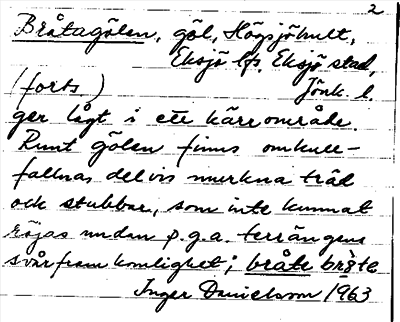 2
Bråtagölen, göl, Högsjöhult,
Eksjö lfs. Eksjö stad,
(forts) Jönk. l.
ger lågt i ett kärrområde.
Runt gölen finns omkull-
fallna, delvis murkna träd
och stubbar, som inte kunnat
röjas undan p.g.a. terrängens
svårframkomlighet; bråte
Inger Danielsson 1963